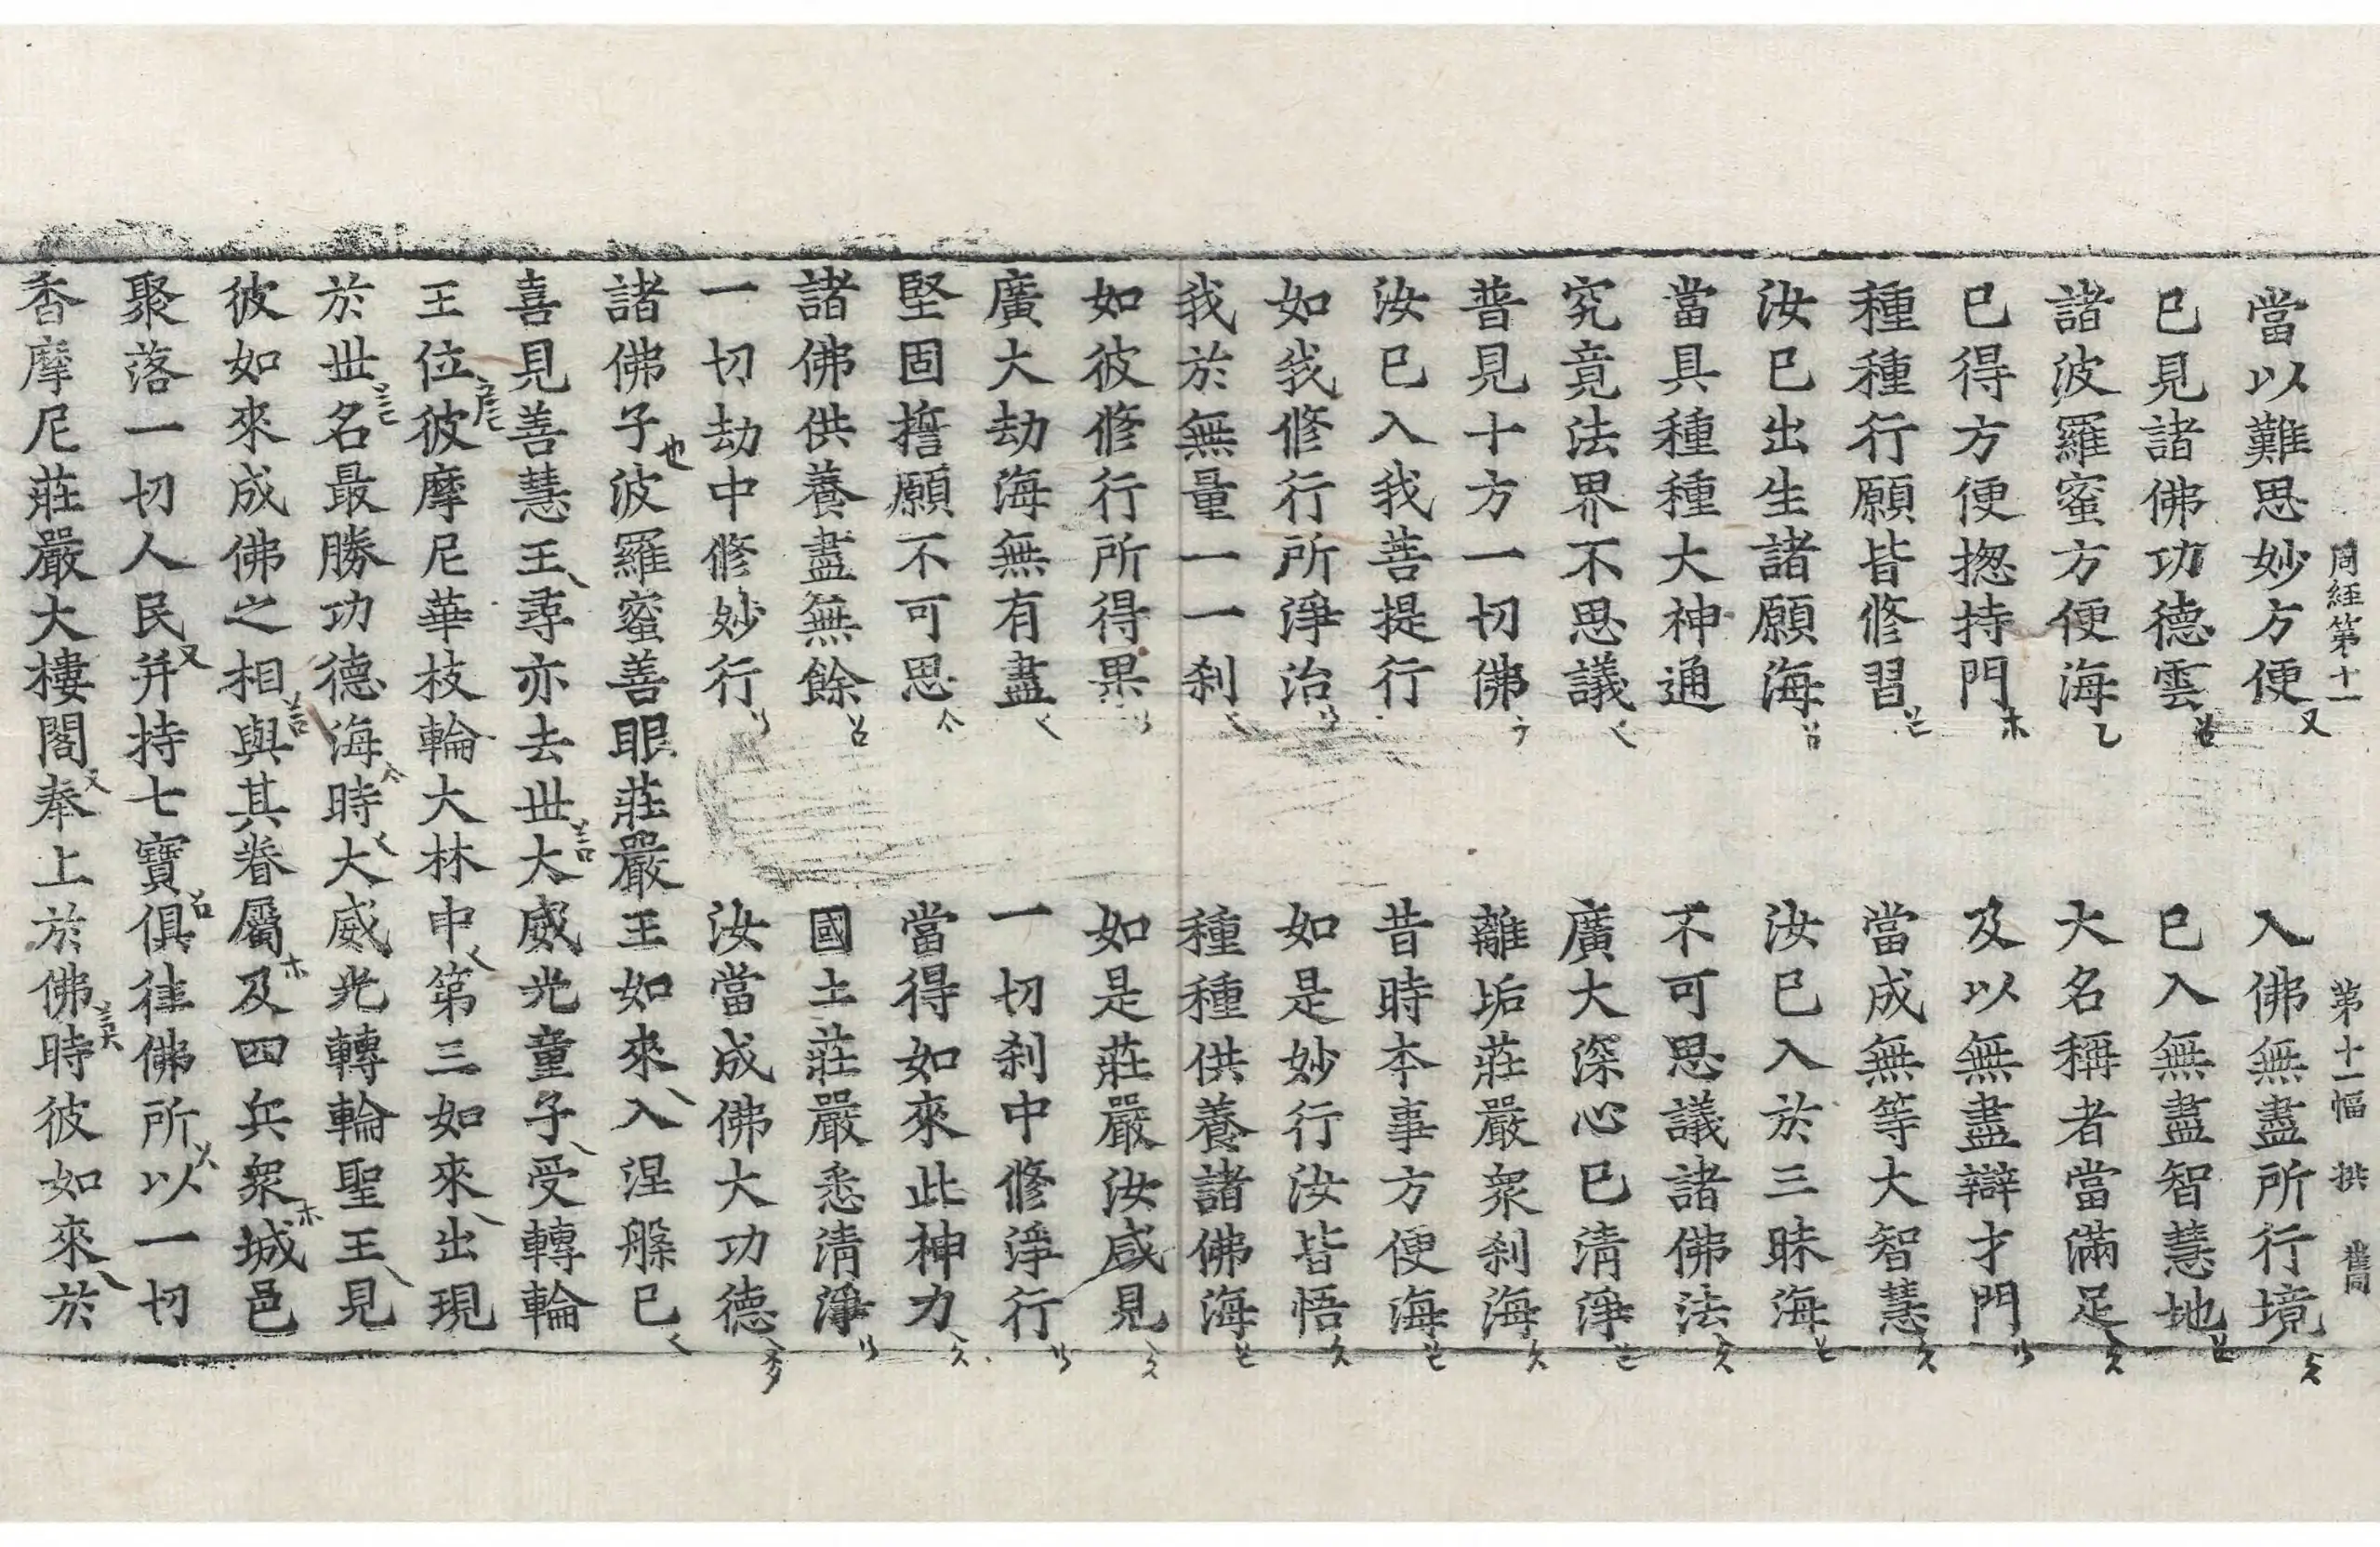 周經第十一 第十一幅 拱 舊同
當以難思妙方便 入佛無盡所行境
已見諸佛功德雲 已入無盡智慧地
諸波羅蜜方便海 大名稱者當滿足
已得方便揔持門 及以無盡辯才門
種種行願皆修習 當成無等大智慧
汝已出生諸願海 汝已入於三昧海
當具種種大神通 不可思議諸佛法
究竟法界不思議 廣大深心已清淨
普見十方一切佛 離垢莊嚴衆刹海
汝已入我菩提行 昔時本事方便海
如我修行所淨治 如是妙行汝皆悟
我於無量一一刹 種種供養諸佛海
如彼修行所得果 如是莊嚴汝咸見
廣大劫海無有盡 一切刹中修淨行
堅固誓願不可思 當得如來此神力
諸佛供養盡無餘 國土莊嚴悉清淨
一切劫中修妙行 汝當成佛大功德
諸佛子波羅蜜善眼莊嚴王如來入涅槃已
喜見善慧王尋亦去世大威光童子受轉輪
王位彼摩尼華枝輪大林中第三如來出現
於世名最勝功德海時大威光轉輪聖王見
彼如來成佛之相與其眷屬及四兵衆城邑
聚落一切人民幷持七寶俱往佛所以一切
香摩尼莊嚴大樓閣奉上於佛時彼如來於